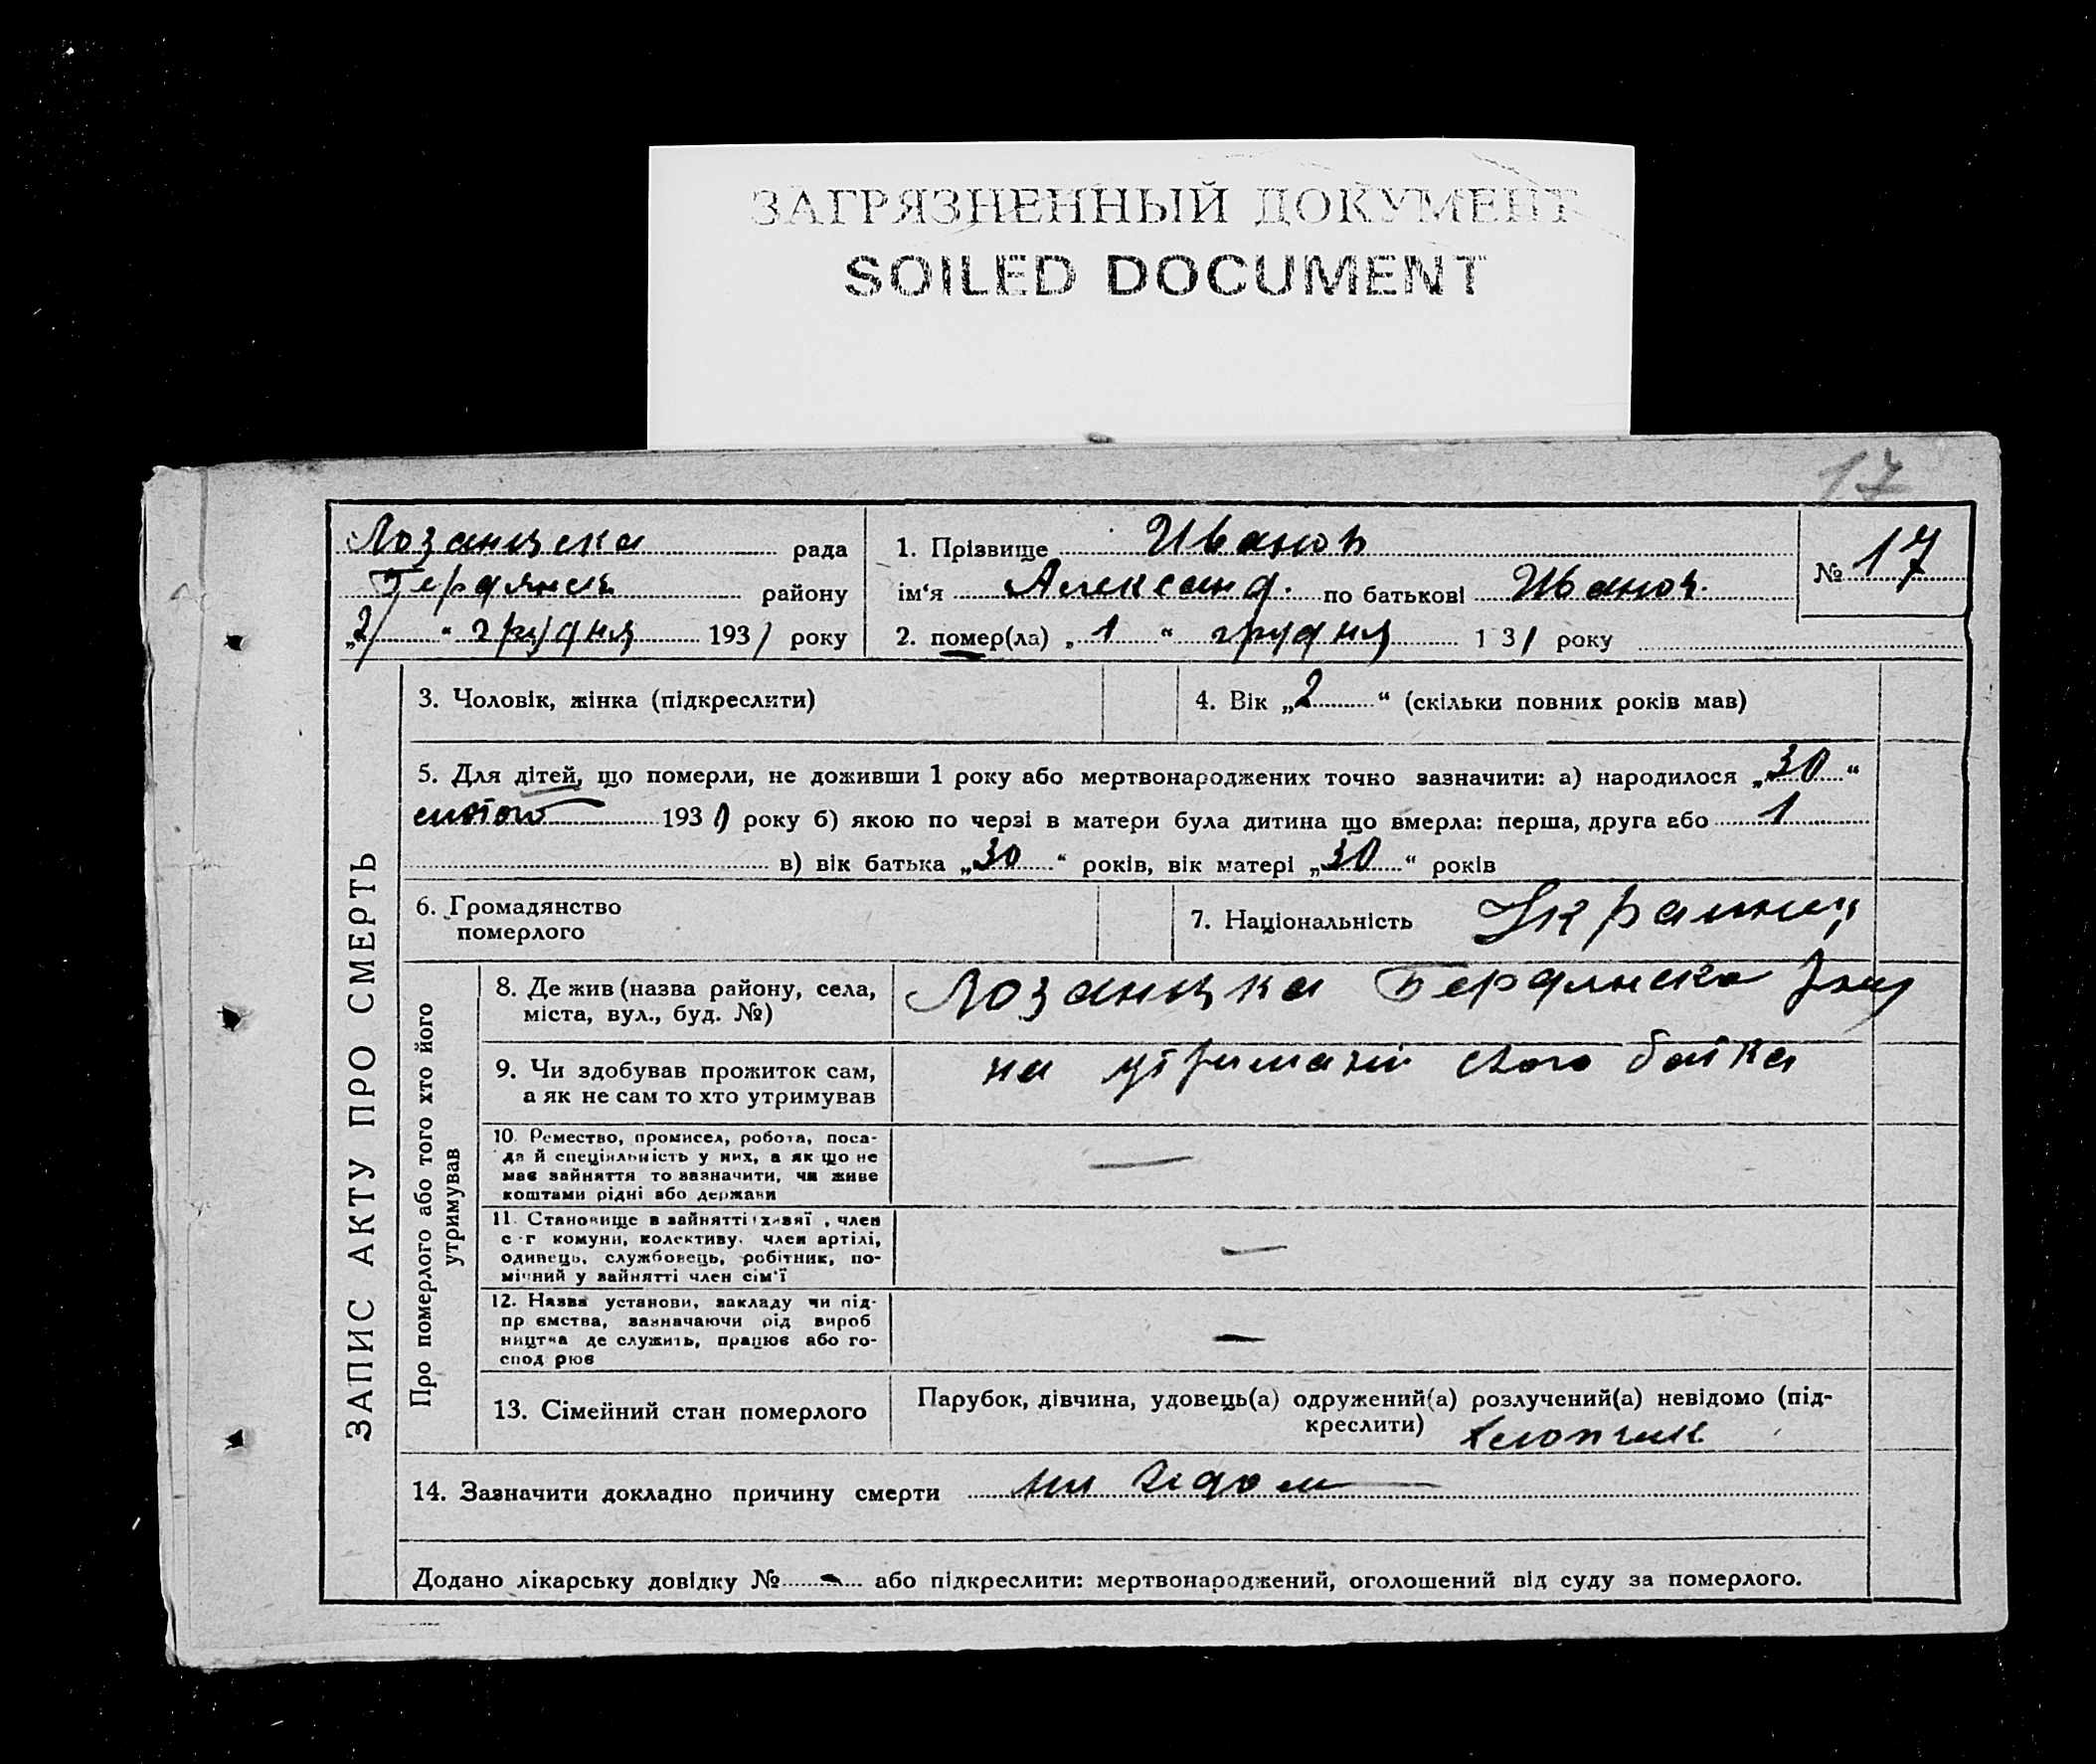 ЗАГРЯЗНЕННЫЙ ДОКУМЕНТ
SOILED DOCUMENT
17
Лозанивска рада
Бердянск району
„2“ грудня 1931 року
1. Прізвище Иванов
ім'я Александ. по батькові Иванов.
2. помер(ла) „1“ грудня 1 31 року
№ 17
ЗАПИС АКТУ ПРО СМЕРТЬ
3. Чоловік, жінка (підкреслити)
4. Вік „2“ (скільки повних років мав)
5. Для дітей, що померли, не доживши 1 року або мертвонароджених точно зазначити: а) народилося „30“
193 року б) якою по черзі в матери була дитина що вмерла: перша, друга або 1
в) вік батька „30“ років, вік матері „30“ років
6. Громадянство
померлого
7. Національність Украинец
Про померлого або того хто його
утримував
8. Де жив (назва району, села,
міста, вул., буд. №)
Бердянска
9. Чи здобував прожиток сам,
а як не сам то хто утримував
на утримані свого батка
10. Ремество, промисел, робота, поса-
да й спеціяльність у них, а як що не
має зайняття то зазначити, чи живе
коштами рідні або держави
—
11. Становище в зайнятті , член
с-г комуни, колективу, член артілі,
одинець, службовець, робітник, по-
мічний у зайнятті член сім'ї
—
12. Назва установи, закладу чи під-
пр ємства, зазначаючи рід вироб
ництва де служить, працює або го-
спод рює
—
13. Сімейний стан померлого
Парубок, дівчина, удовець(а) одружений(а) розлучений(а) невідомо (під-
креслити) хлопчик
14. Зазначити докладно причину смерти
Додано лікарську довідку № - або підкреслити: мертвонароджений, оголошений від суду за померлого.